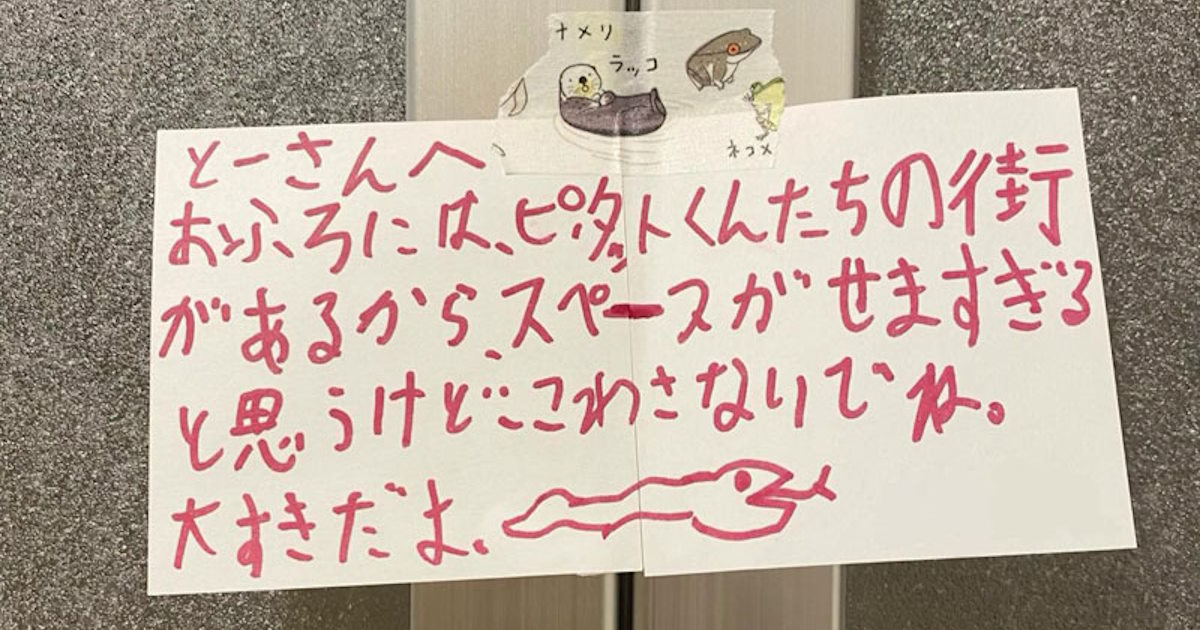 ナメリ
ラッコ
ネコメ
とーさんへ
おふろには、ピタットくんたちの街
があるから、スペースがせますぎる
と思うけど、こわさないでね。
大すきだよ。